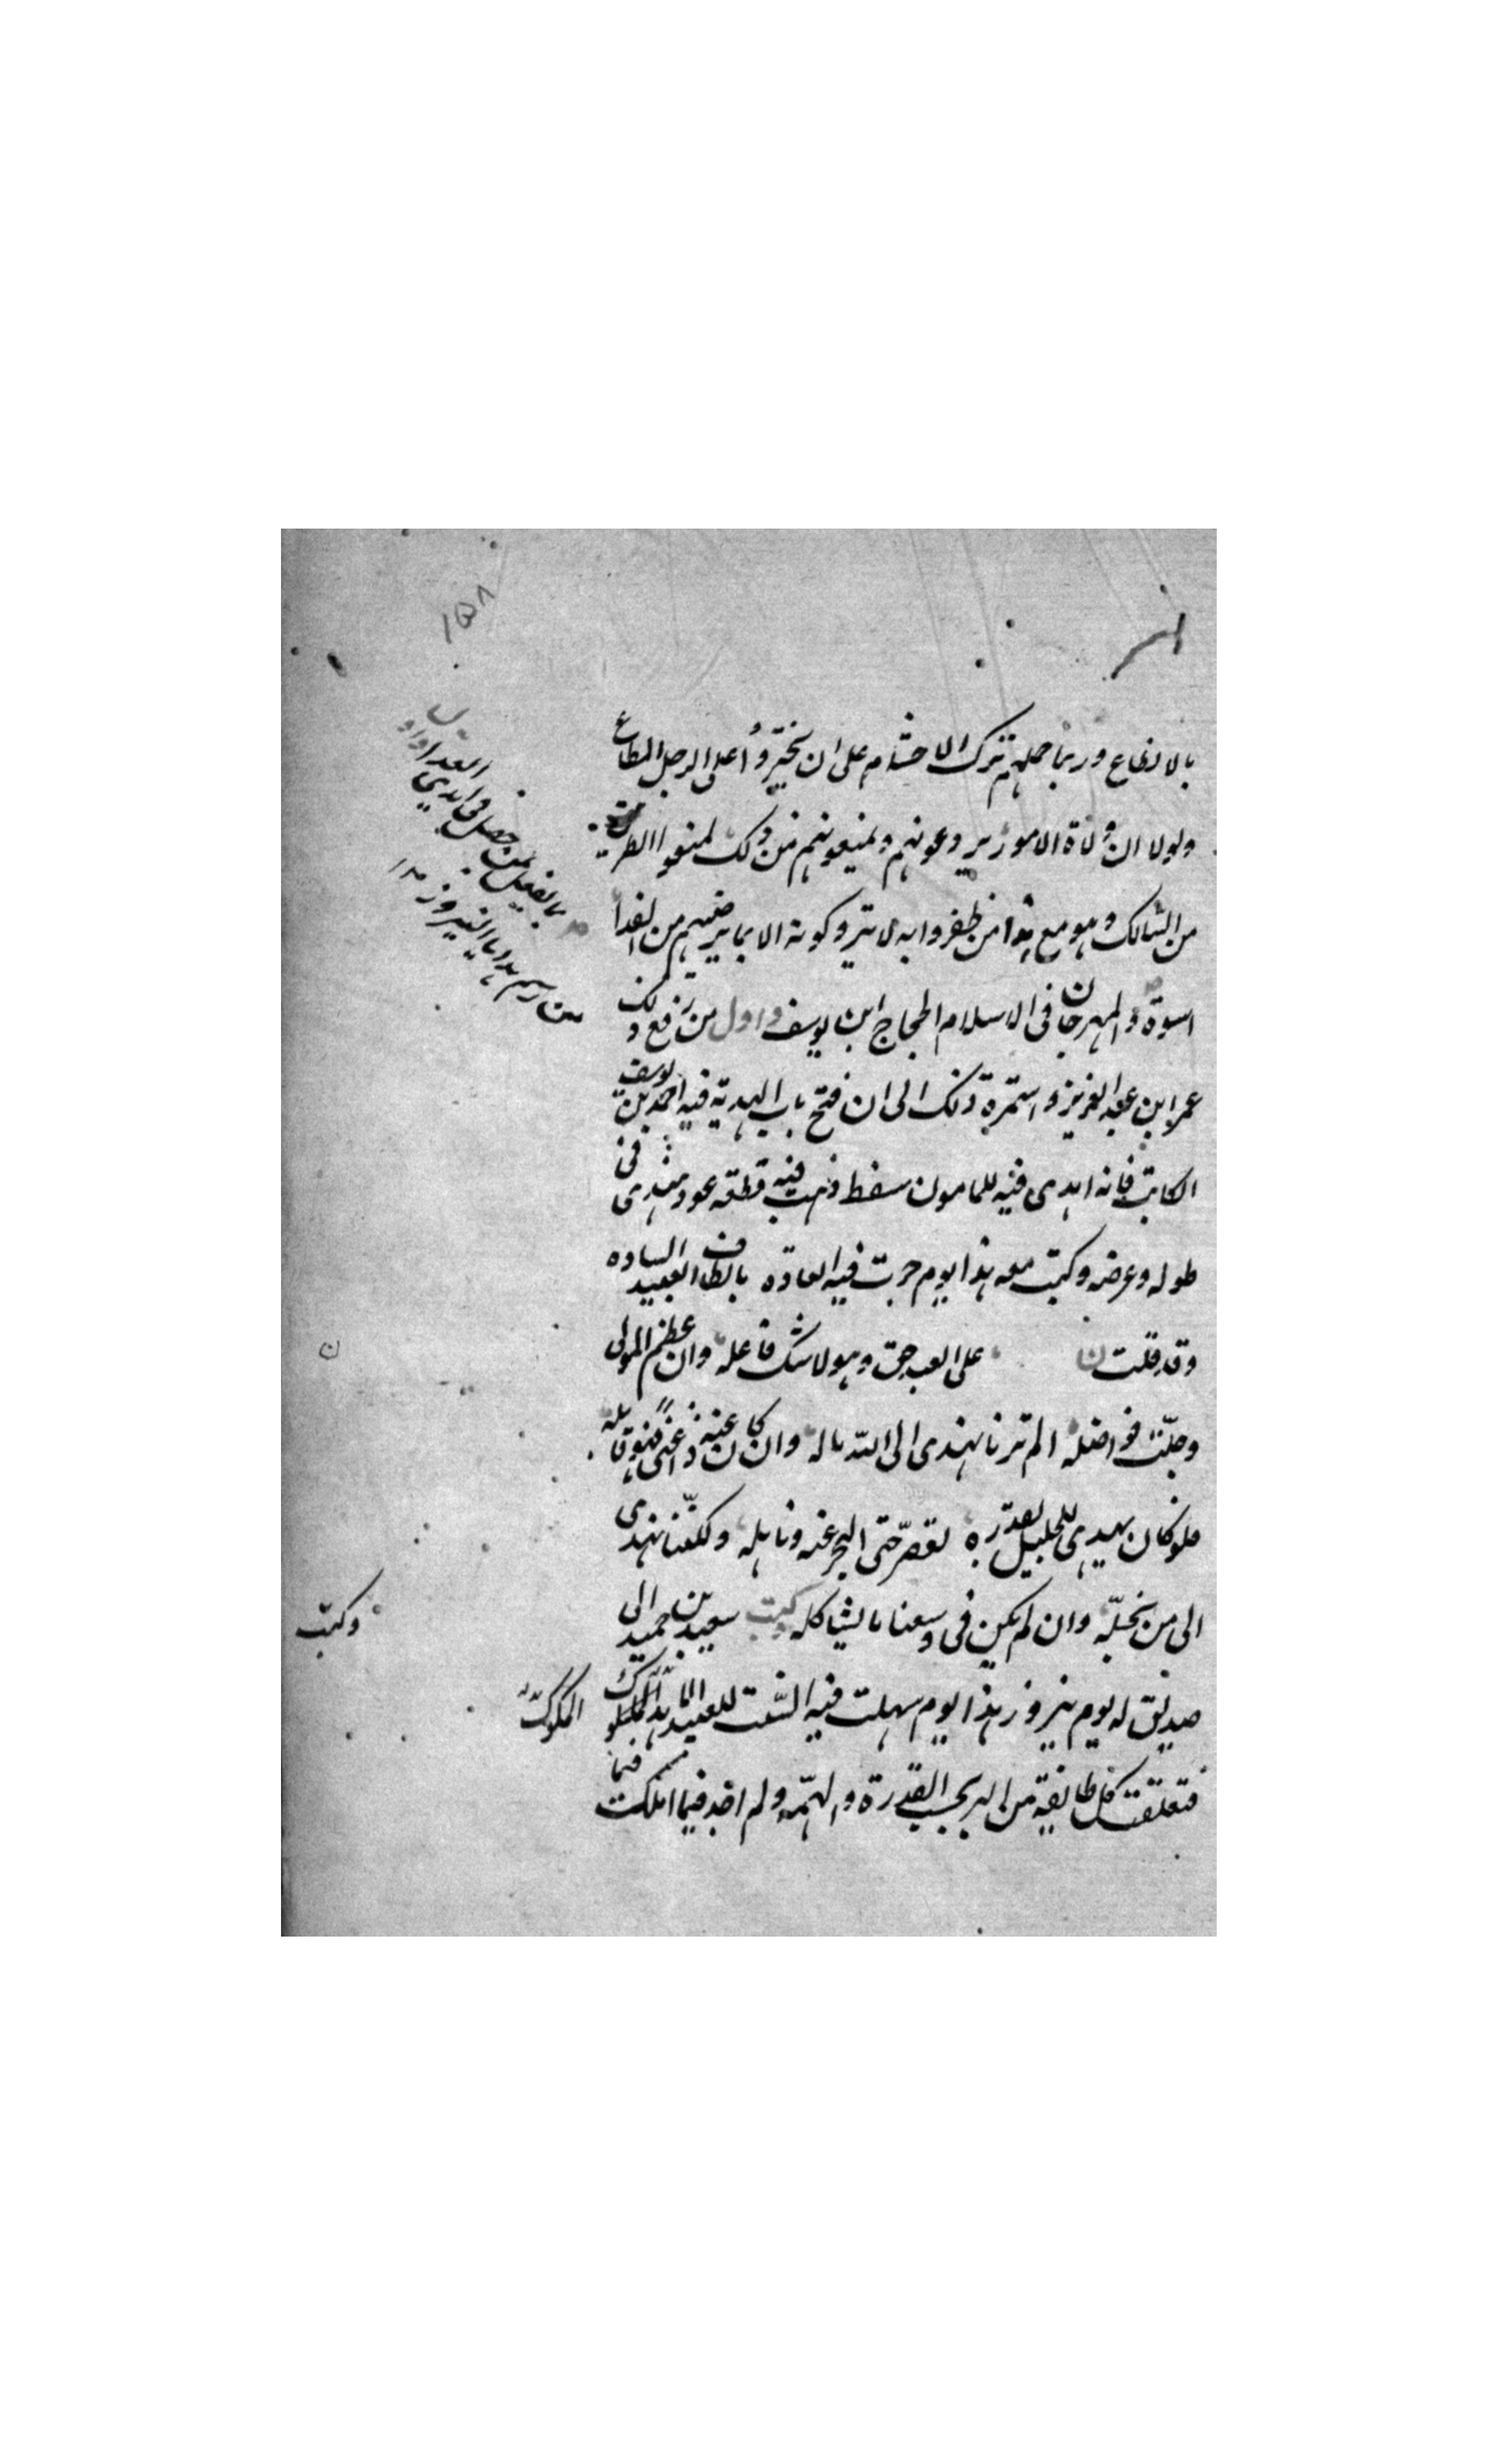 ١٥٨
بالانطاع وربما حملهم ترك الاحتشام على ان يتجرؤا على الرجل المطاع
ولولا ان ولاة الامور يردعونهم ويمنعونهم من ذلك لمنعوا الطريق
من السالك وهو مع هذا من ظفروا به لا يتركونه الا بما يرضيهم من الفدا
اسوة والمهرجان فى الاسلام الحجاج ابن يوسف واول من رفع ذلك
عمر ابن عبد العزيز واستمرة ذلك الى ان فتح باب الهدية فيه احمد بن يوسف
الكاتب فانه اهدى فيه للمامون سفط ذهب فيه قطعة عود هندى فى
طوله وعرضه وكتب معه هذا يوم جرت فيه العادة بالطاف العبيد السادة
وقد قلت على العبد حق وهو لا شك فاعله وان عظم المولى
وجلت فواضله الم ترنا نهدى الى الله ماله وان كان عنه ذا غنى فهو قابله
فلو كان يهدى للجليل بقدره لقصر حتى البحر عنه ونايله ولكننا نهدى
الى من نجله وان لم يكن فى وسعنا ما يشاكله وكتب سعيد بن حميد الى
صديق له يوم نيروز هذا يوم سهلت فيه السنة للعبيد الملوك
فتعلقت كل طايفة من البر بحسب القدرة والهمة ولم اجد فيما املك
بالفعل بمن حصل فى ايدى العدا واول
من رسم هدايا النيروز
وكتب
الملوك